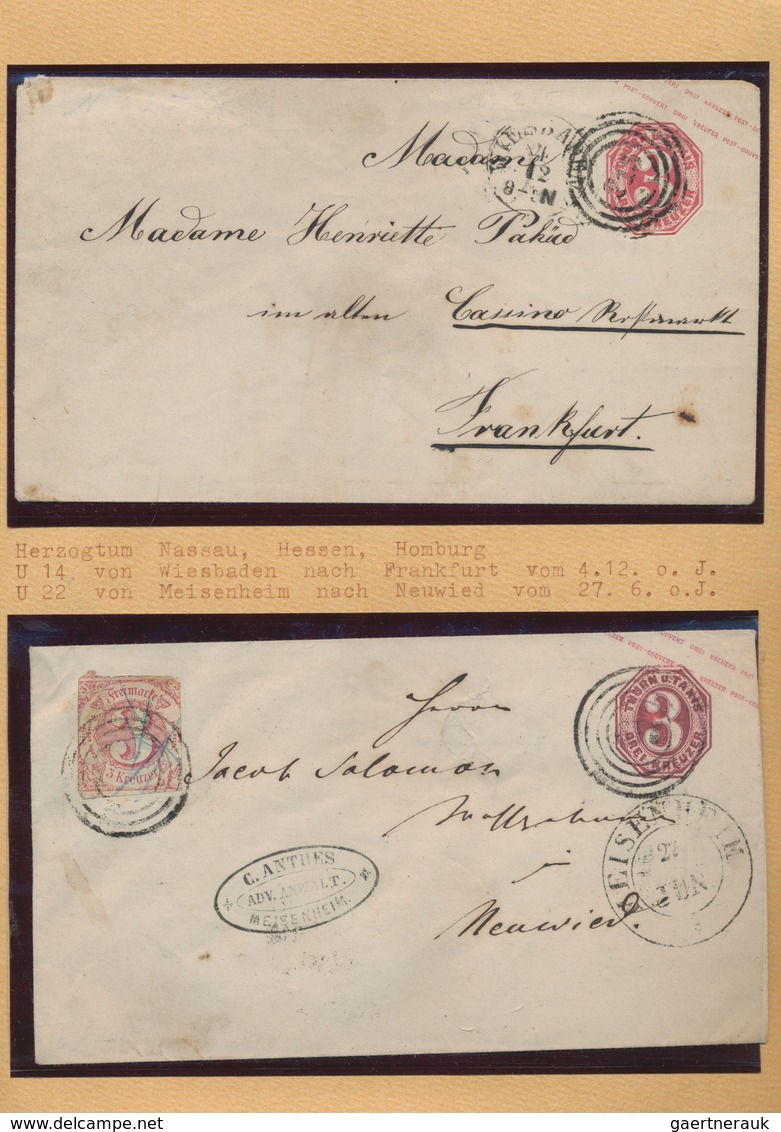 POST-COUVERT DREI KREUZER POST-COUVERT
WIESBA
4
12
THURN U. TAXIS
3
KREUZER
Madame
Madame Henriette Pahüd
im alten Cassino Roßmarkt
Frankfurt.
Herzogtum Nassau, Hessen, Homburg
U 14 von Wiesbaden nach Frankfurt vom 4.12. o. J.
U 22 von Meisenheim nach Neuwied vom 27. 6. o.J.
POST-COUVERT DREI KREUZER POST-COUVERT
Freimarke
3
3 Kreuzer
THURN U. TAXIS
3
DREI KREUZER
Herrn
Jacob Salomon
in
Neuwied.
MEISENHEIM
27
JUN
C. ANTHES
ADV. ANWALT.
MEISENHEIM.
www.delcampe.net
gaertnerauk